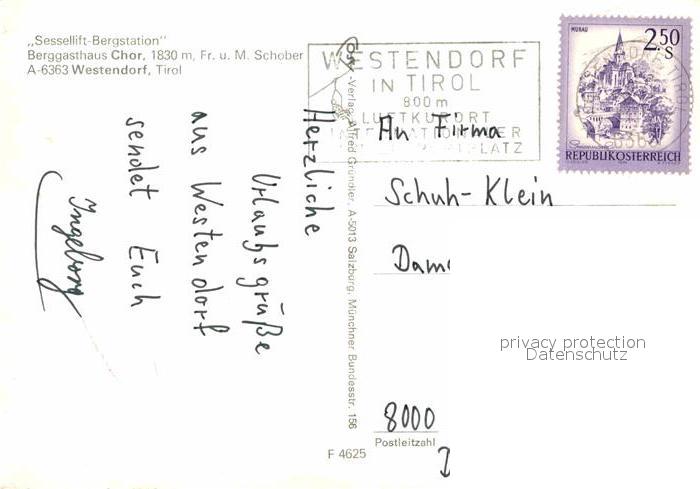 „Sessellift-Bergstation"
Berggasthaus Chor, 1830 m, Fr. u. M. Schober
A-6363 Westendorf, Tirol
WESTENDORF
IN TIROL
800 m
LUFTKURORT
MURAU
2.50
S
REPUBLIK ÖSTERREICH
Herzliche
Urlaubsgrüße
aus Westendorf
sendet Euch
Ingeborg
-Verlag Alfred Gründler, A-5013 Salzburg, Münchner Bundesstr. 156
An Firma
Schuh-Klein
privacy protection
Datenschutz
8000
Postleitzahl
F 4625